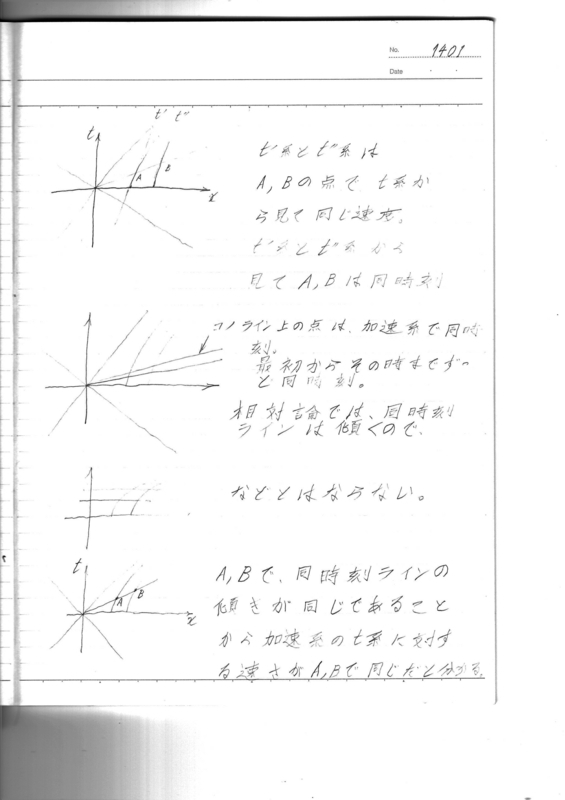 No. 1401
Date
t' t"
t
A
B
x
t'系とt"系は
A,Bの点で t系か
ら見て同じ速度。
t'系とt"系から
見て A,Bは同時刻
コノライン上の点は、加速系で同時
刻。
最初からその時までずっ
と同時刻。
相対論では、同時刻
ラインは傾くので、
などとはならない。
t
A
B
x
A,Bで、同時刻ラインの
傾きが同じであること
から加速系のt系に対す
る速さがA,Bで同じだと分かる。